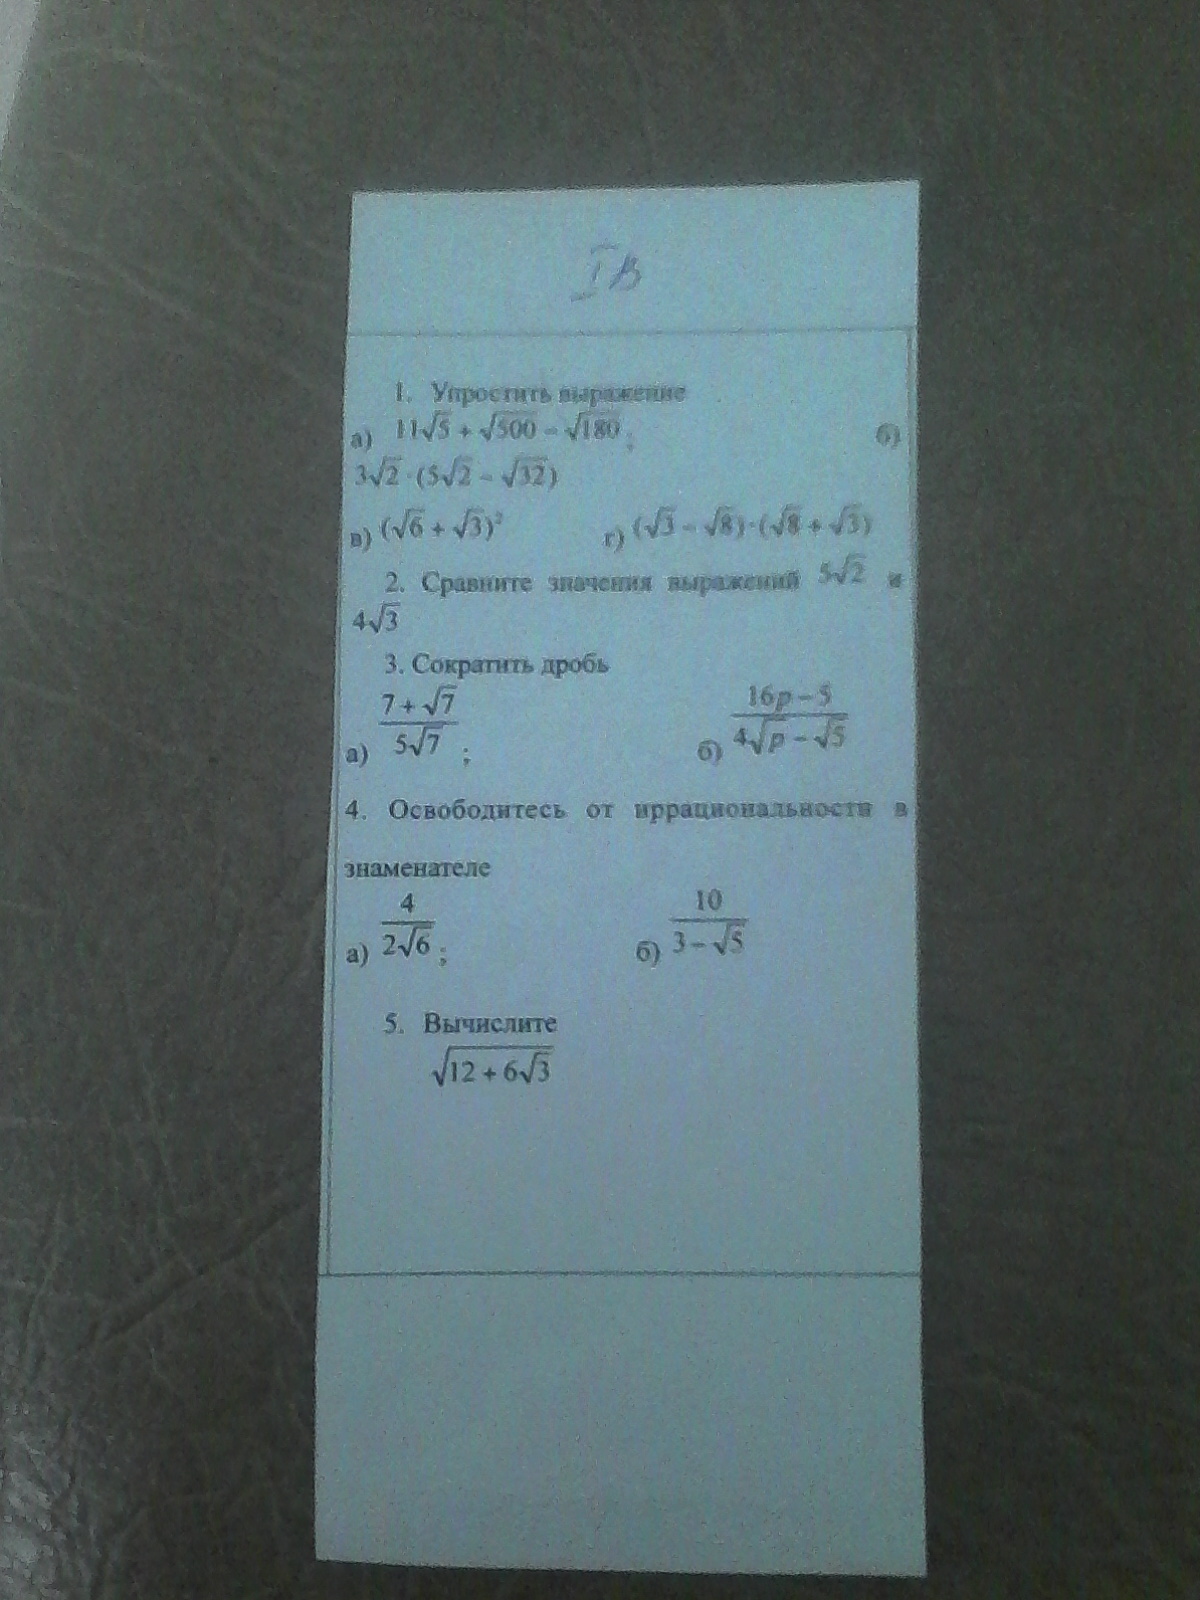 I В
1. Упростить выражение
а) 11√5 + √500 − √180 ; б)
3√2 · (5√2 − √32)
в) (√6 + √3)² г) (√3 − √8)·(√8 + √3)
2. Сравните значения выражений 5√2 и
4√3
3. Сократить дробь
а) (7 + √7)/(5√7) ; б) (16p − 5)/(4√p − √5)
4. Освободитесь от иррациональности в
знаменателе
а) 4/(2√6) ; б) 10/(3 − √5)
5. Вычислите
√(12 + 6√3)